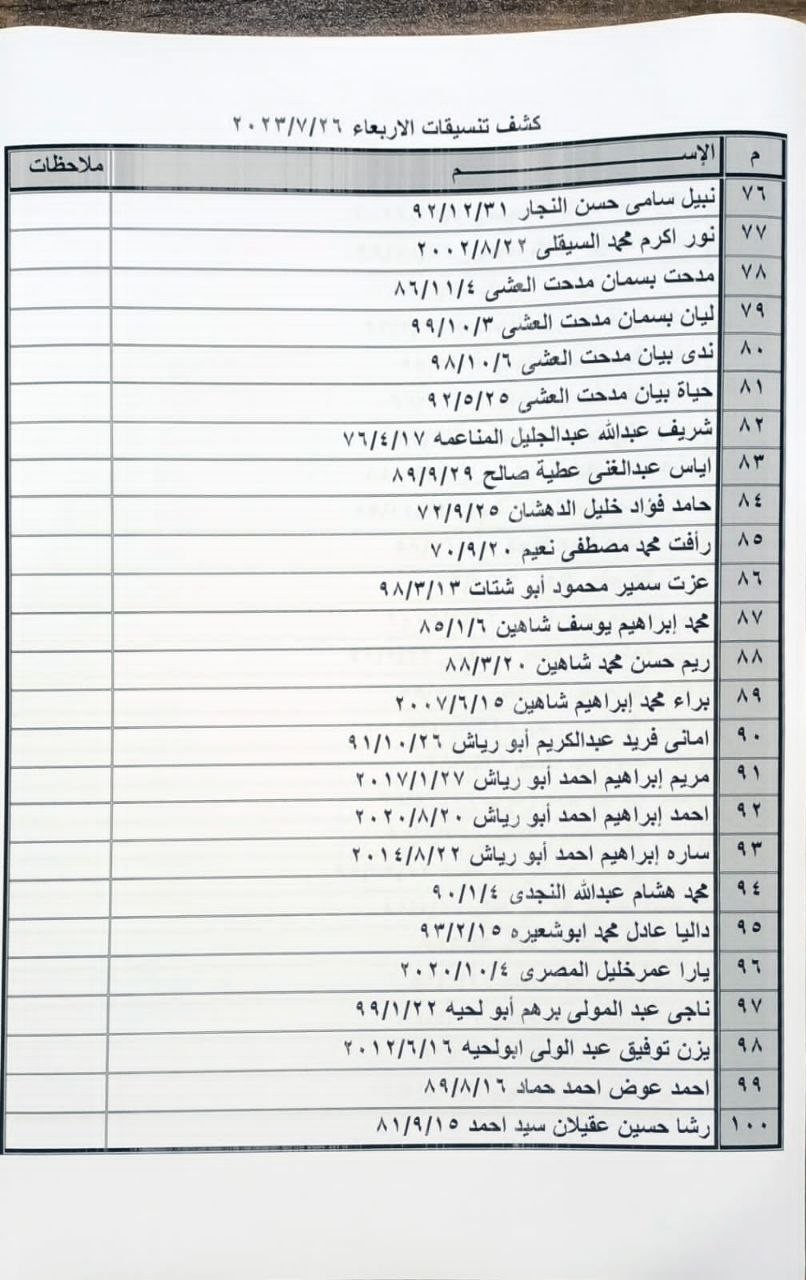 كشف تنسيقات الاربعاء ٢٠٢٣/٧/٢٦
م الإســـــــــم ملاحظات
٧٦ نبيل سامى حسن النجار ٩٢/١٢/٣١
٧٧ نور اكرم محمد السيقلى ٢٠٠٢/٨/٢٢
٧٨ مدحت بسمان مدحت العشى ٨٦/١١/٤
٧٩ ليان بسمان مدحت العشى ٩٩/١٠/٣
٨٠ ندى بيان مدحت العشى ٩٨/١٠/٦
٨١ حياة بيان مدحت العشى ٩٢/٥/٢٥
٨٢ شريف عبدالله عبدالجليل المناعمه ٧٦/٤/١٧
٨٣ اياس عبدالغنى عطية صالح ٨٩/٩/٢٩
٨٤ حامد فؤاد خليل الدهشان ٧٢/٩/٢٥
٨٥ رأفت محمد مصطفى نعيم ٧٠/٩/٢٠
٨٦ عزت سمير محمود أبو شتات ٩٨/٣/١٣
٨٧ محمد إبراهيم يوسف شاهين ٨٥/١/٦
٨٨ ريم حسن محمد شاهين ٨٨/٣/٢٠
٨٩ براء محمد إبراهيم شاهين ٢٠٠٧/٦/١٥
٩٠ امانى فريد عبدالكريم أبو رياش ٩١/١٠/٢٦
٩١ مريم إبراهيم احمد أبو رياش ٢٠١٧/١/٢٧
٩٢ احمد إبراهيم احمد أبو رياش ٢٠٢٠/٨/٢٠
٩٣ ساره إبراهيم احمد أبو رياش ٢٠١٤/٨/٢٢
٩٤ محمد هشام عبدالله النجدى ٩٠/١/٤
٩٥ داليا عادل محمد ابوشعيره ٩٣/٢/١٥
٩٦ يارا عمرخليل المصرى ٢٠٢٠/١٠/٤
٩٧ ناجى عبد المولى برهم أبو لحيه ٩٩/١/٢٢
٩٨ يزن توفيق عبد الولى ابولحيه ٢٠١٢/٦/١٦
٩٩ احمد عوض احمد حماد ٨٩/٨/١٦
١٠٠ رشا حسين عقيلان سيد احمد ٨١/٩/١٥